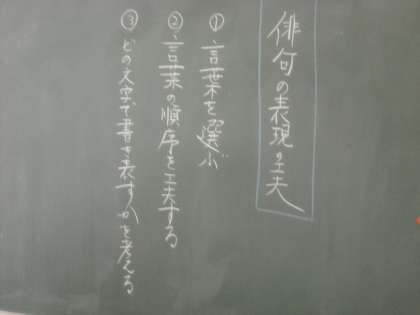 俳句の表現の工夫
① 言葉を選ぶ
② 言葉の順序を工夫する
③ どの文字で書き表すかを考える